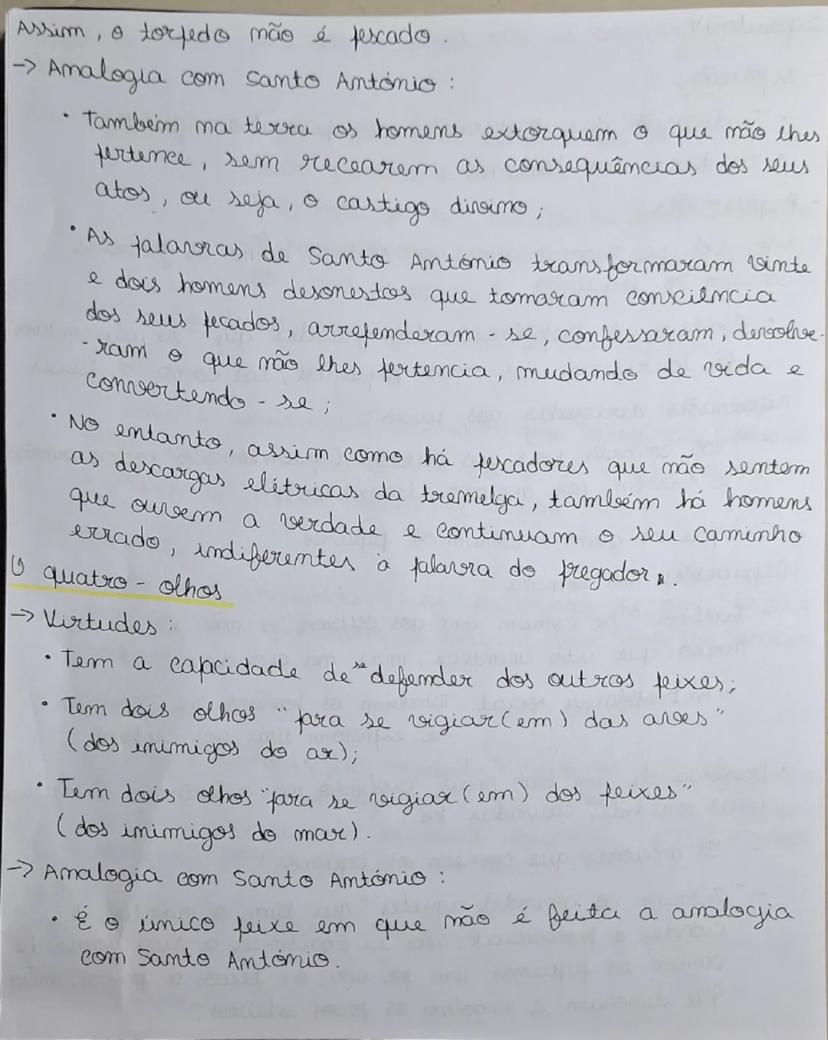 Assim, o torpedo não é pescado.
→ Analogia com Santo António:
• Também na terra os homens extorquem o que não lhes
pertence, sem recearem as consequências dos seus
atos, ou seja, o castigo divino;
• As palavras de Santo António transformaram vinte
e dois homens desonestos que tomaram consciência
dos seus pecados, arrependeram-se, confessaram, devolve-
-ram o que não lhes pertencia, mudando de vida e
convertendo-se;
• No entanto, assim como há pescadores que não sentem
as descargas elétricas da tremelga, também há homens
que ouvem a verdade e continuam o seu caminho
errado, indiferentes à palavra do pregador.
O quatro-olhos
→ Virtudes:
• Tem a capacidade de se defender dos outros peixes;
• Tem dois olhos "para se vigiar(em) das aves"
(dos inimigos do ar);
• Tem dois olhos "para se vigiar(em) dos peixes"
(dos inimigos do mar).
→ Analogia com Santo António:
• é o único peixe em que não é feita a analogia
com Santo António.